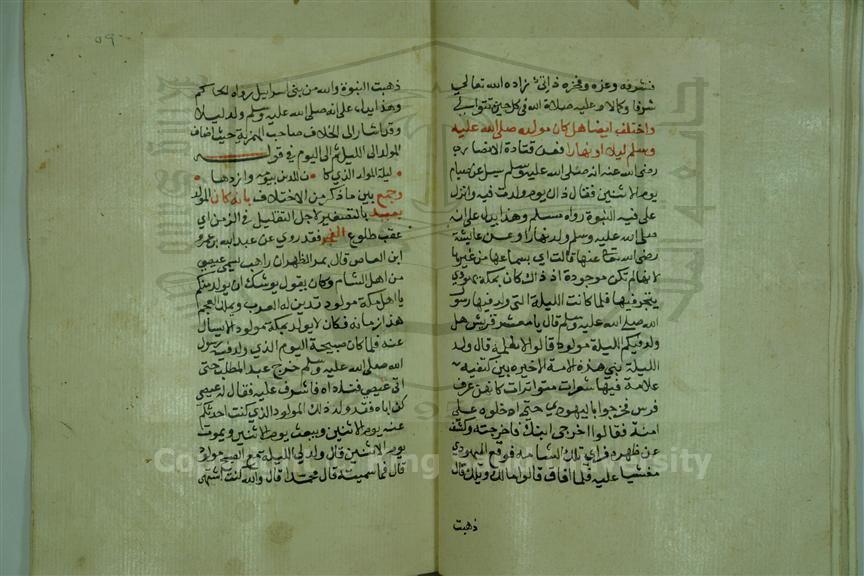 فتشرفه وعزه وفخره ذاتي زاده الله تعالى
شرفا وكمالا وعليه صلاة الله في كل حين تتوالى
واختلف ايضا هل كان مولده صلى الله عليه
وسلم ليلا او نهارا فعن قتادة الانصاري
رضى الله عنه انه صلى الله عليه وسلم سيل عن صيام
يوم الاثنين فقال ذاك يوم ولدت فيه وانزل
علي فيه النبوة رواه مسلم وهذا يدل على انه
صلى الله عليه وسلم ولد نهارا وعن عائشة
رضى الله عنها قالت اي بسماعها من غيرها
لانها لم تكن موجودة اذ ذاك كان بمكة يهودي
يتجر فيها فلما كانت الليلة التي ولد فيها رسول
الله صلى الله عليه وسلم قال يا معشر قريش هل
ولد فيكم الليلة مولود قالوا لا نعلمه قال ولد
الليلة نبي هذه الامة الاخيره بين كتفيه
علامة فيها شعرات متواترات كانهن عرف
فرس فخرجوا باليهودي حتى ادخلوه على
امنة فقالوا اخرجي ابنك فاخرجته وكشفوا
عن ظهره فراى تلك الشامة فوقع اليهودي
مغشيا عليه فلما افاق قالوا مالك ويلك قال
ذهبت
٥٩
ذهبت النبوة والله من بني اسرائيل رواه الحاكم
وهذا يدل على انه صلى الله عليه وسلم ولد ليلا
وقد اشار الى الخلاف صاحب الهمزية حيث اضاف
المولد الى الليل ثم الى اليوم في قوله
ليلة المولد الذي كان للدين بيومه وازدها
وجمع بين ما ذكر من الاختلاف بانه كان المولد
بعيد بالتصغير لاجل التقليل في الزمن اي
عقب طلوع الفجر فقد روي عن عبد الله بن عمرو
ابن العاص قال بمر الظهران راهب يسمى عيصي
من اهل الشام وكان يقول يوشك ان يولد منكم
يا اهل مكة مولود تدين له العرب ويملك العجم
هذا زمانه فكان لا يولد بمكة مولود الا يسال
عنه فلما كان صبيحة اليوم الذي ولد فيه رسول
الله صلى الله عليه وسلم خرج عبد المطلب حتى
اتى عيصي فناداه فاشرف عليه فقال له عيصي
كن اباه فقد ولد ذلك المولود الذي كنت احدثكم
عنه يوم الاثنين ويبعث يوم الاثنين ويموت
يوم الاثنين قال ولد لي الليلة مع الصبح مولود
قال فما سميته قال محمدا قال والله لقد كنت اشتهى